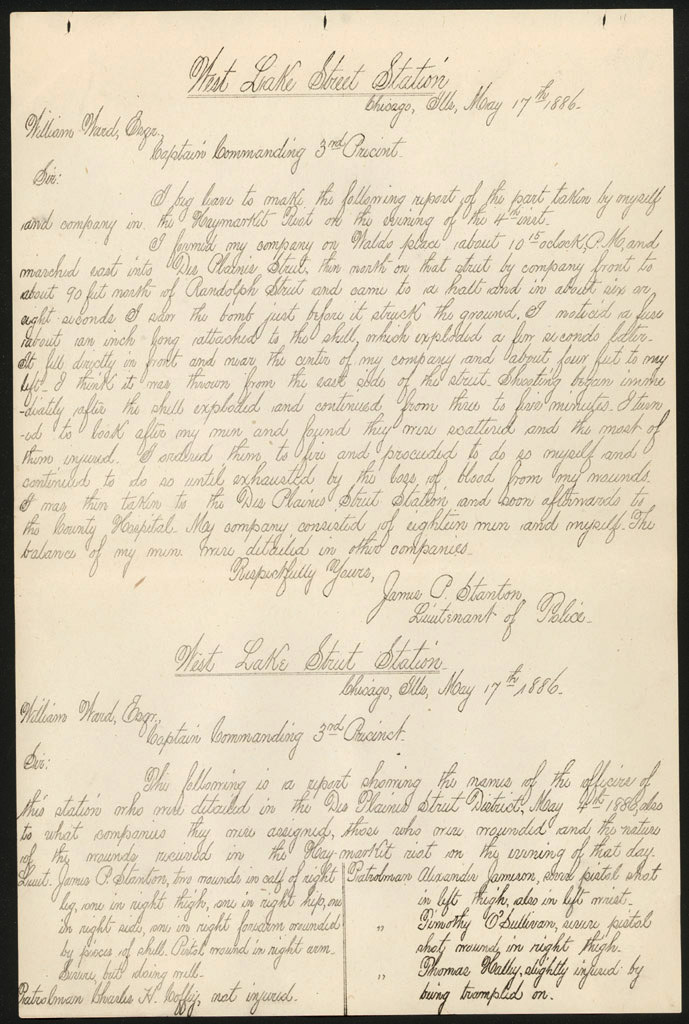 West Lake Street Station
Chicago, Ills, May 17th 1886.
William Ward, Esqr.,
Captain Commanding 3rd Precint.
Sir:
I beg leave to make the following report of the part taken by myself
and company in the Haymarket Riot on the evening of the 4th inst.
I formed my company on Waldo place about 10 15 oclock, P.M. and
marched east into Des Plaines Street, then north on that street by company front to
about 90 feet north of Randolph Street and came to a halt and in about six or
eight seconds I saw the bomb just before it struck the ground, I noticed a fuse
about an inch long attached to the shell, which exploded a few seconds later.
It fell directly in front and near the center of my company and about four feet to my
left. I think it was thrown from the east side of the street. Shooting began imme
-diately after the shell exploded and continued from three to five minutes. I turn
-ed to look after my men and found they were scattered and the most of
them injured. I ordered them to fire and proceeded to do so myself and
continued to do so until exhausted by the loss of blood from my wounds.
I was then taken to the Des Plaines Street Station and soon afterwards to
the County Hospital. My company consisted of eighteen men and myself. The
balance of my men were detailed in other companies.
Respectfully Yours,
James P. Stanton
Lieutenant of Police.
West Lake Street Station
Chicago, Ills, May 17th 1886.
William Ward, Esqr.,
Captain Commanding 3rd Precinct.
Sir:
The following is a report showing the names of the officers of
this station who were detailed in the Des Plaines Street District, May 4th 1886, also
to what companies they were assigned, those who were wounded and the nature
of the wounds received in the Hay-market riot on the evening of that day.
Lieut. James P. Stanton, two wounds in calf of right
leg, one in right thigh, one in right hip, one
in right side, one in right forearm wounded
by pieces of shell. Pistol wound in right arm.
Severe, but doing well.
Patrolman Charles H. Coffey, not injured.
Patrolman Alexander Jamison, severe pistol shot
in left thigh, also in left wrist.
" Timothy O'Sullivan, severe pistol
shot wound in right thigh.
" Thomas Halley, slightly injured by
being trampled on.